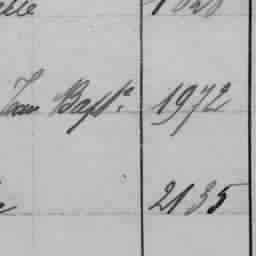 elle 1828
Jean Bapt.e 1972
2135